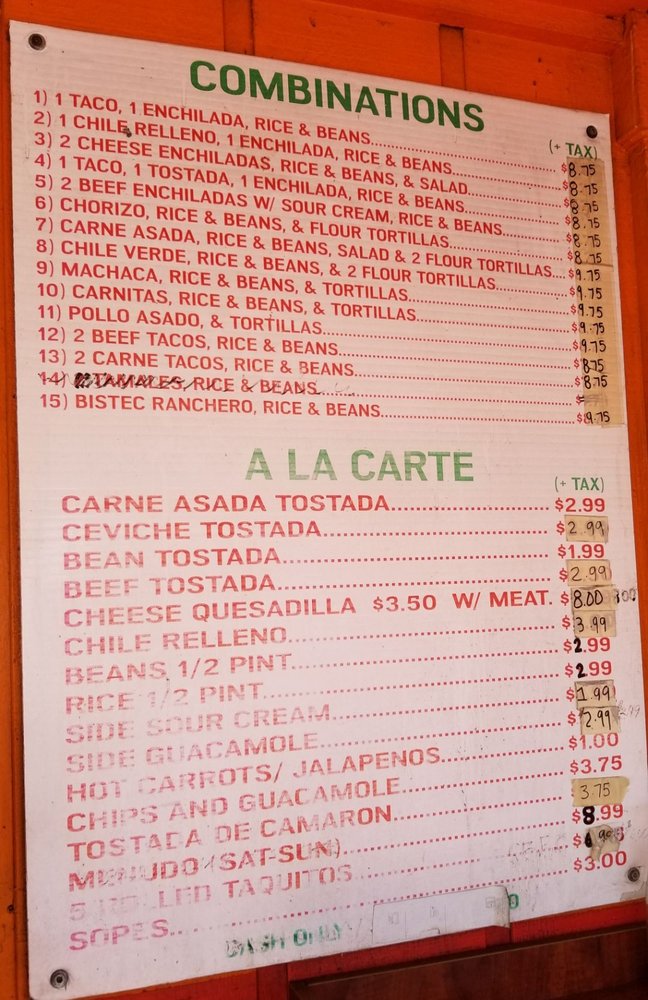 COMBINATIONS
(+ TAX)
1) 1 TACO, 1 ENCHILADA, RICE & BEANS..........$8.75
2) 1 CHILE RELLENO, 1 ENCHILADA, RICE & BEANS..........$8.75
3) 2 CHEESE ENCHILADAS, RICE & BEANS, & SALAD..........$8.75
4) 1 TACO, 1 TOSTADA, 1 ENCHILADA, RICE & BEANS..........$8.75
5) 2 BEEF ENCHILADAS W/ SOUR CREAM, RICE & BEANS..........$8.75
6) CHORIZO, RICE & BEANS, & FLOUR TORTILLAS..........$8.75
7) CARNE ASADA, RICE & BEANS, SALAD & 2 FLOUR TORTILLAS....$9.75
8) CHILE VERDE, RICE & BEANS, & 2 FLOUR TORTILLAS..........$9.75
9) MACHACA, RICE & BEANS, & TORTILLAS..........$9.75
10) CARNITAS, RICE & BEANS, & TORTILLAS..........$9.75
11) POLLO ASADO, & TORTILLAS..........$9.75
12) 2 BEEF TACOS, RICE & BEANS..........$8.75
13) 2 CARNE TACOS, RICE & BEANS..........$8.75
14) TAMALES, RICE & BEANS..........$
15) BISTEC RANCHERO, RICE & BEANS..........$9.75
A LA CARTE
(+ TAX)
CARNE ASADA TOSTADA..........$2.99
CEVICHE TOSTADA..........$2.99
BEAN TOSTADA..........$1.99
BEEF TOSTADA..........$2.99
CHEESE QUESADILLA $3.50 W/ MEAT. $8.00
CHILE RELLENO..........$3.99
BEANS 1/2 PINT..........$2.99
RICE 1/2 PINT..........$2.99
SIDE SOUR CREAM..........$1.99
SIDE GUACAMOLE..........$2.99
HOT CARROTS/ JALAPENOS..........$1.00
CHIPS AND GUACAMOLE..........$3.75
TOSTADA DE CAMARON..........3.75
MENUDO (SAT-SUN)..........$8.99
5 ROLLED TAQUITOS..........$
SOPES..........$3.00
CASH ONLY